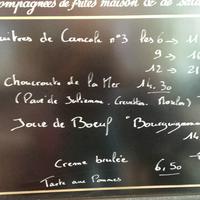 compagnées de frites maison & de sala
uitres de Cancale n°3 les 6 → 11
9 → 
12 → 
Choucroute de la Mer 14.30
(Pavé de Julienne, Crevettes, Moules)
Joue de Boeuf "Bourguignonne
14
Creme brulée 6,50
Tarte aux Pommes